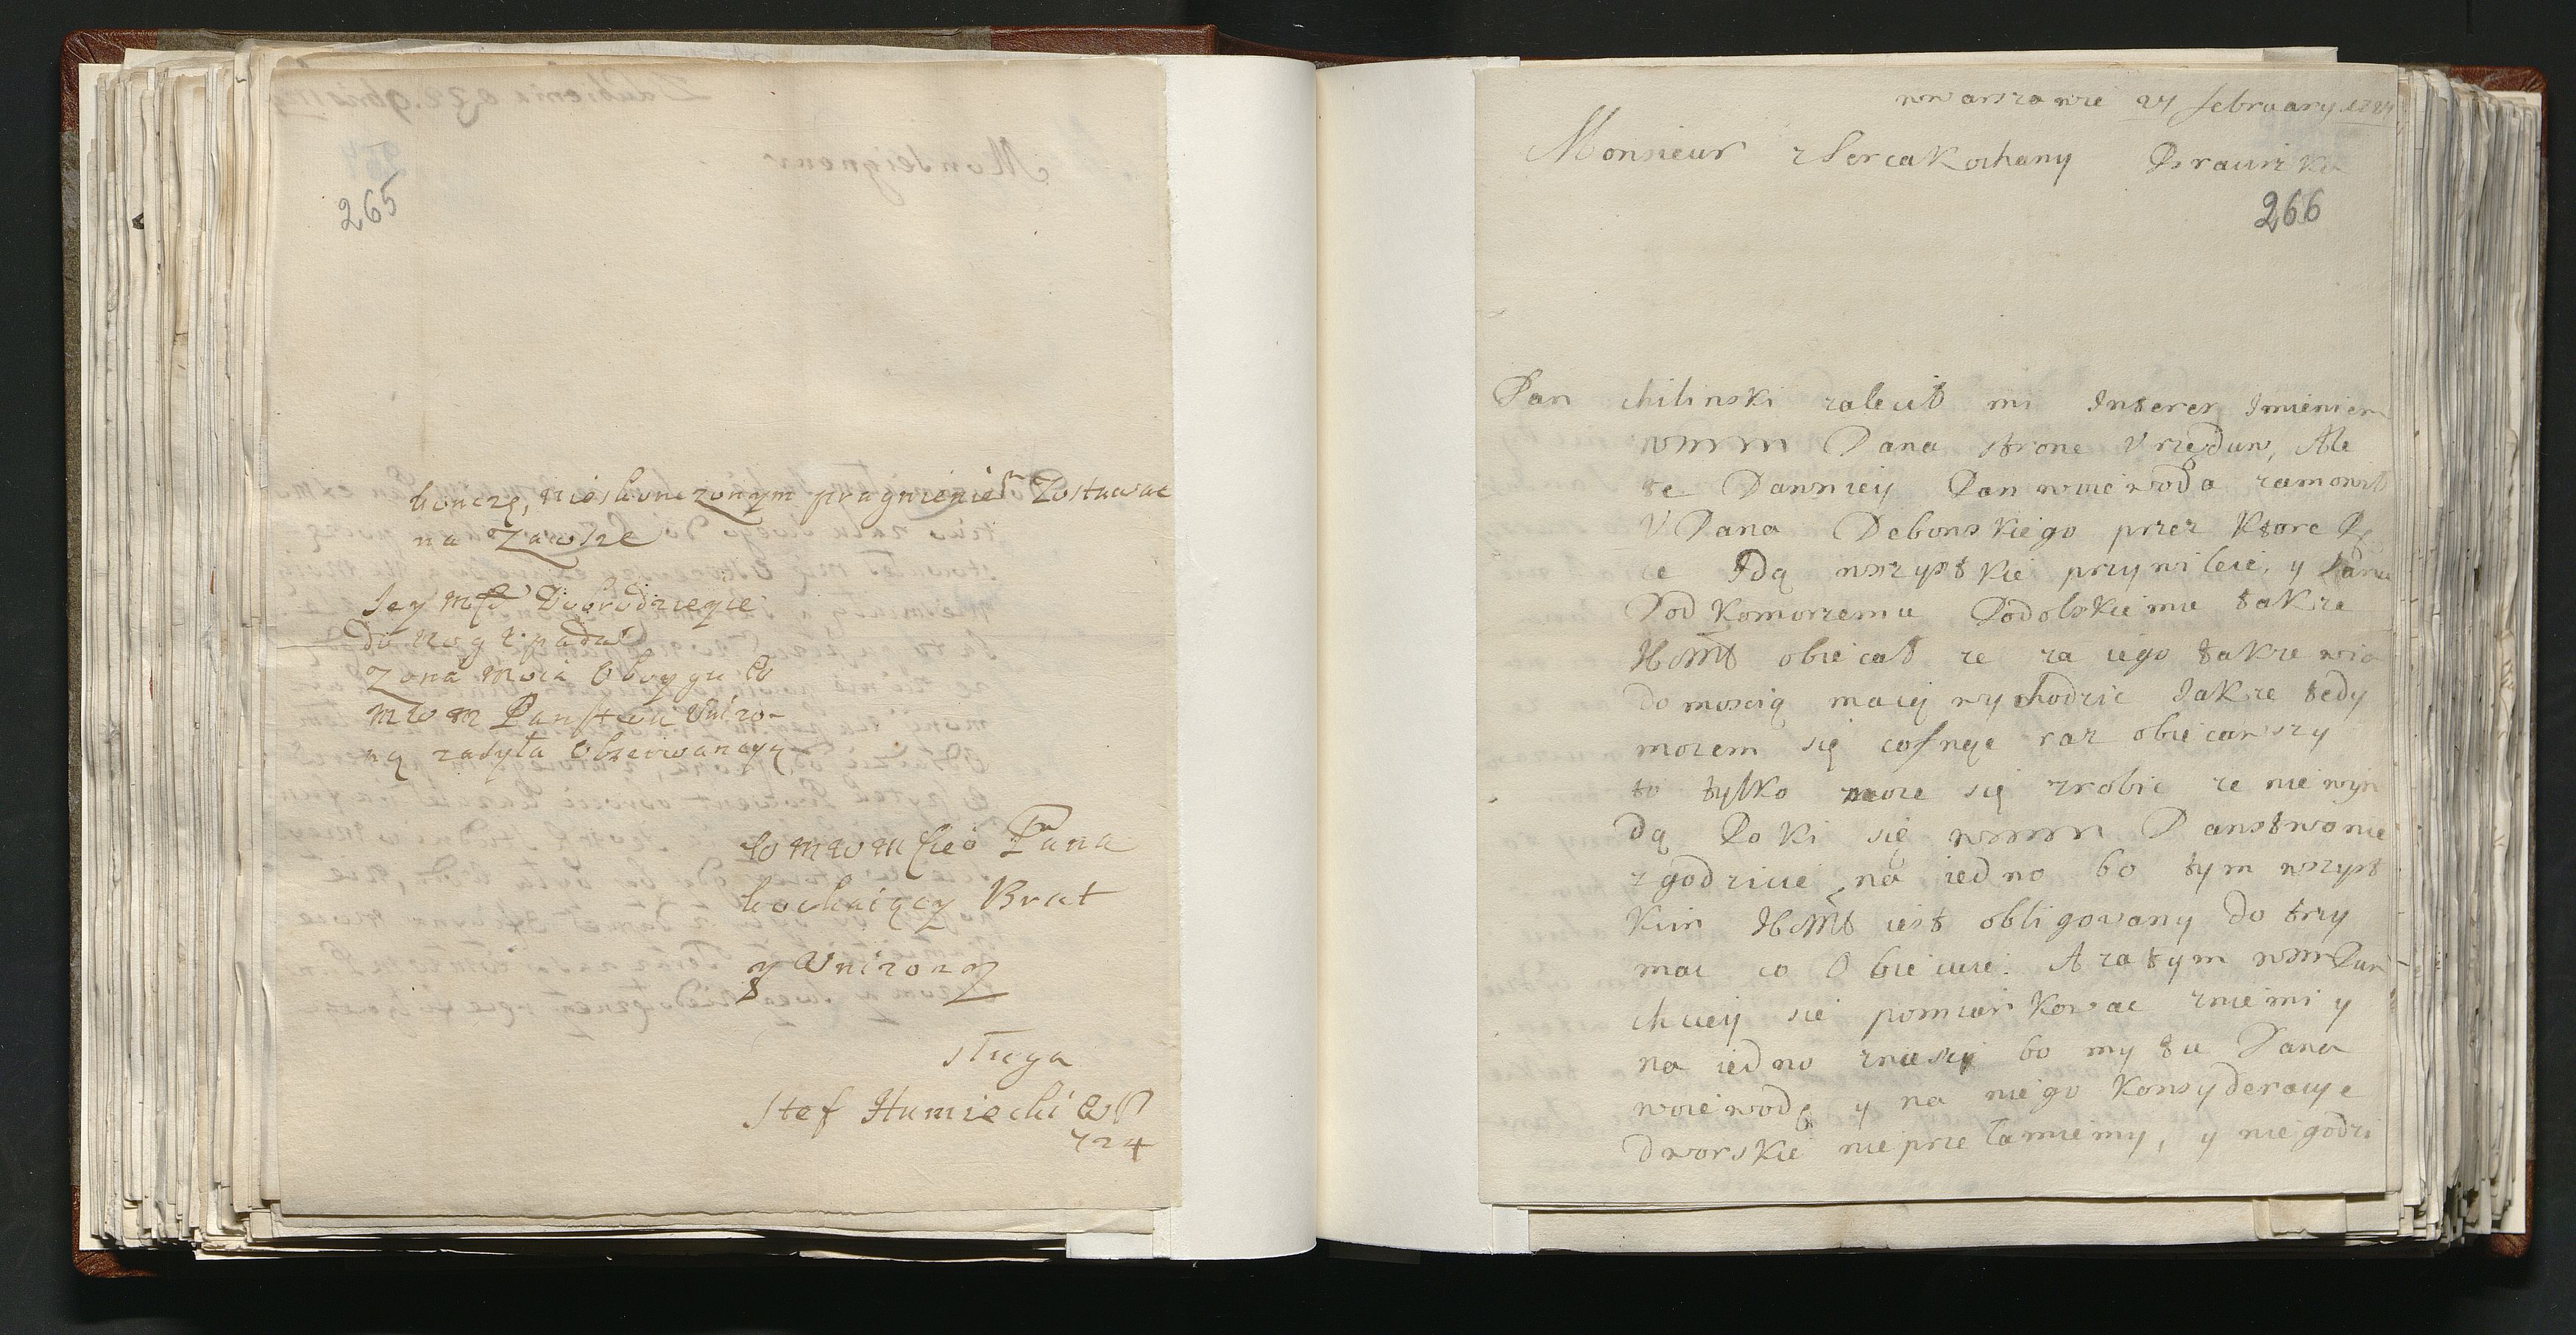 265
konczę, nieskonczonym pragnieniem Zostawac
na Zawsze
Jey Mści Dobrodzieyce
do nog upadał
Zona moia Oboygu W
M W M Panstwu Unizo-
ną zasyła Obserwancyą
W M W M Sieo Pana
kochaiący Brat
y Unizony
sługa
Stef Humiecki WP
724
w warszawie 27 february
Monsieur z Serca Kochany Braciszku
266
Pan chilinski zalecił mi Interes Imieniem
wmm Pana strone Urzędun, Ale
ze Dawniey Pan woiewoda zamowił
U Pana Debonskiego przez Ktore Rę
ce Idą wszystkie przywileie, y Panu
Pod Komorzemu Podolskiemu takze
obiecał ze za iego takze wia
domoscią maią wychodzic Jakze tedy
mozem się cofnąc raz obiecawszy
to tylko moze się zrobic ze nie wyn
dą Poki się wmm Panstwo nie
zgodzicie na iedno bo tym wszyst
kim iest obligowany do trzy
mac co Obiecuie. A zatym wmm Pan
chciey sie pomiarkowac zniemi y
na iedno zniesc bo my tu Pana
woiewodę y na niego Konsyderacye
Dworskie nie przełamiemy, y nie godzi